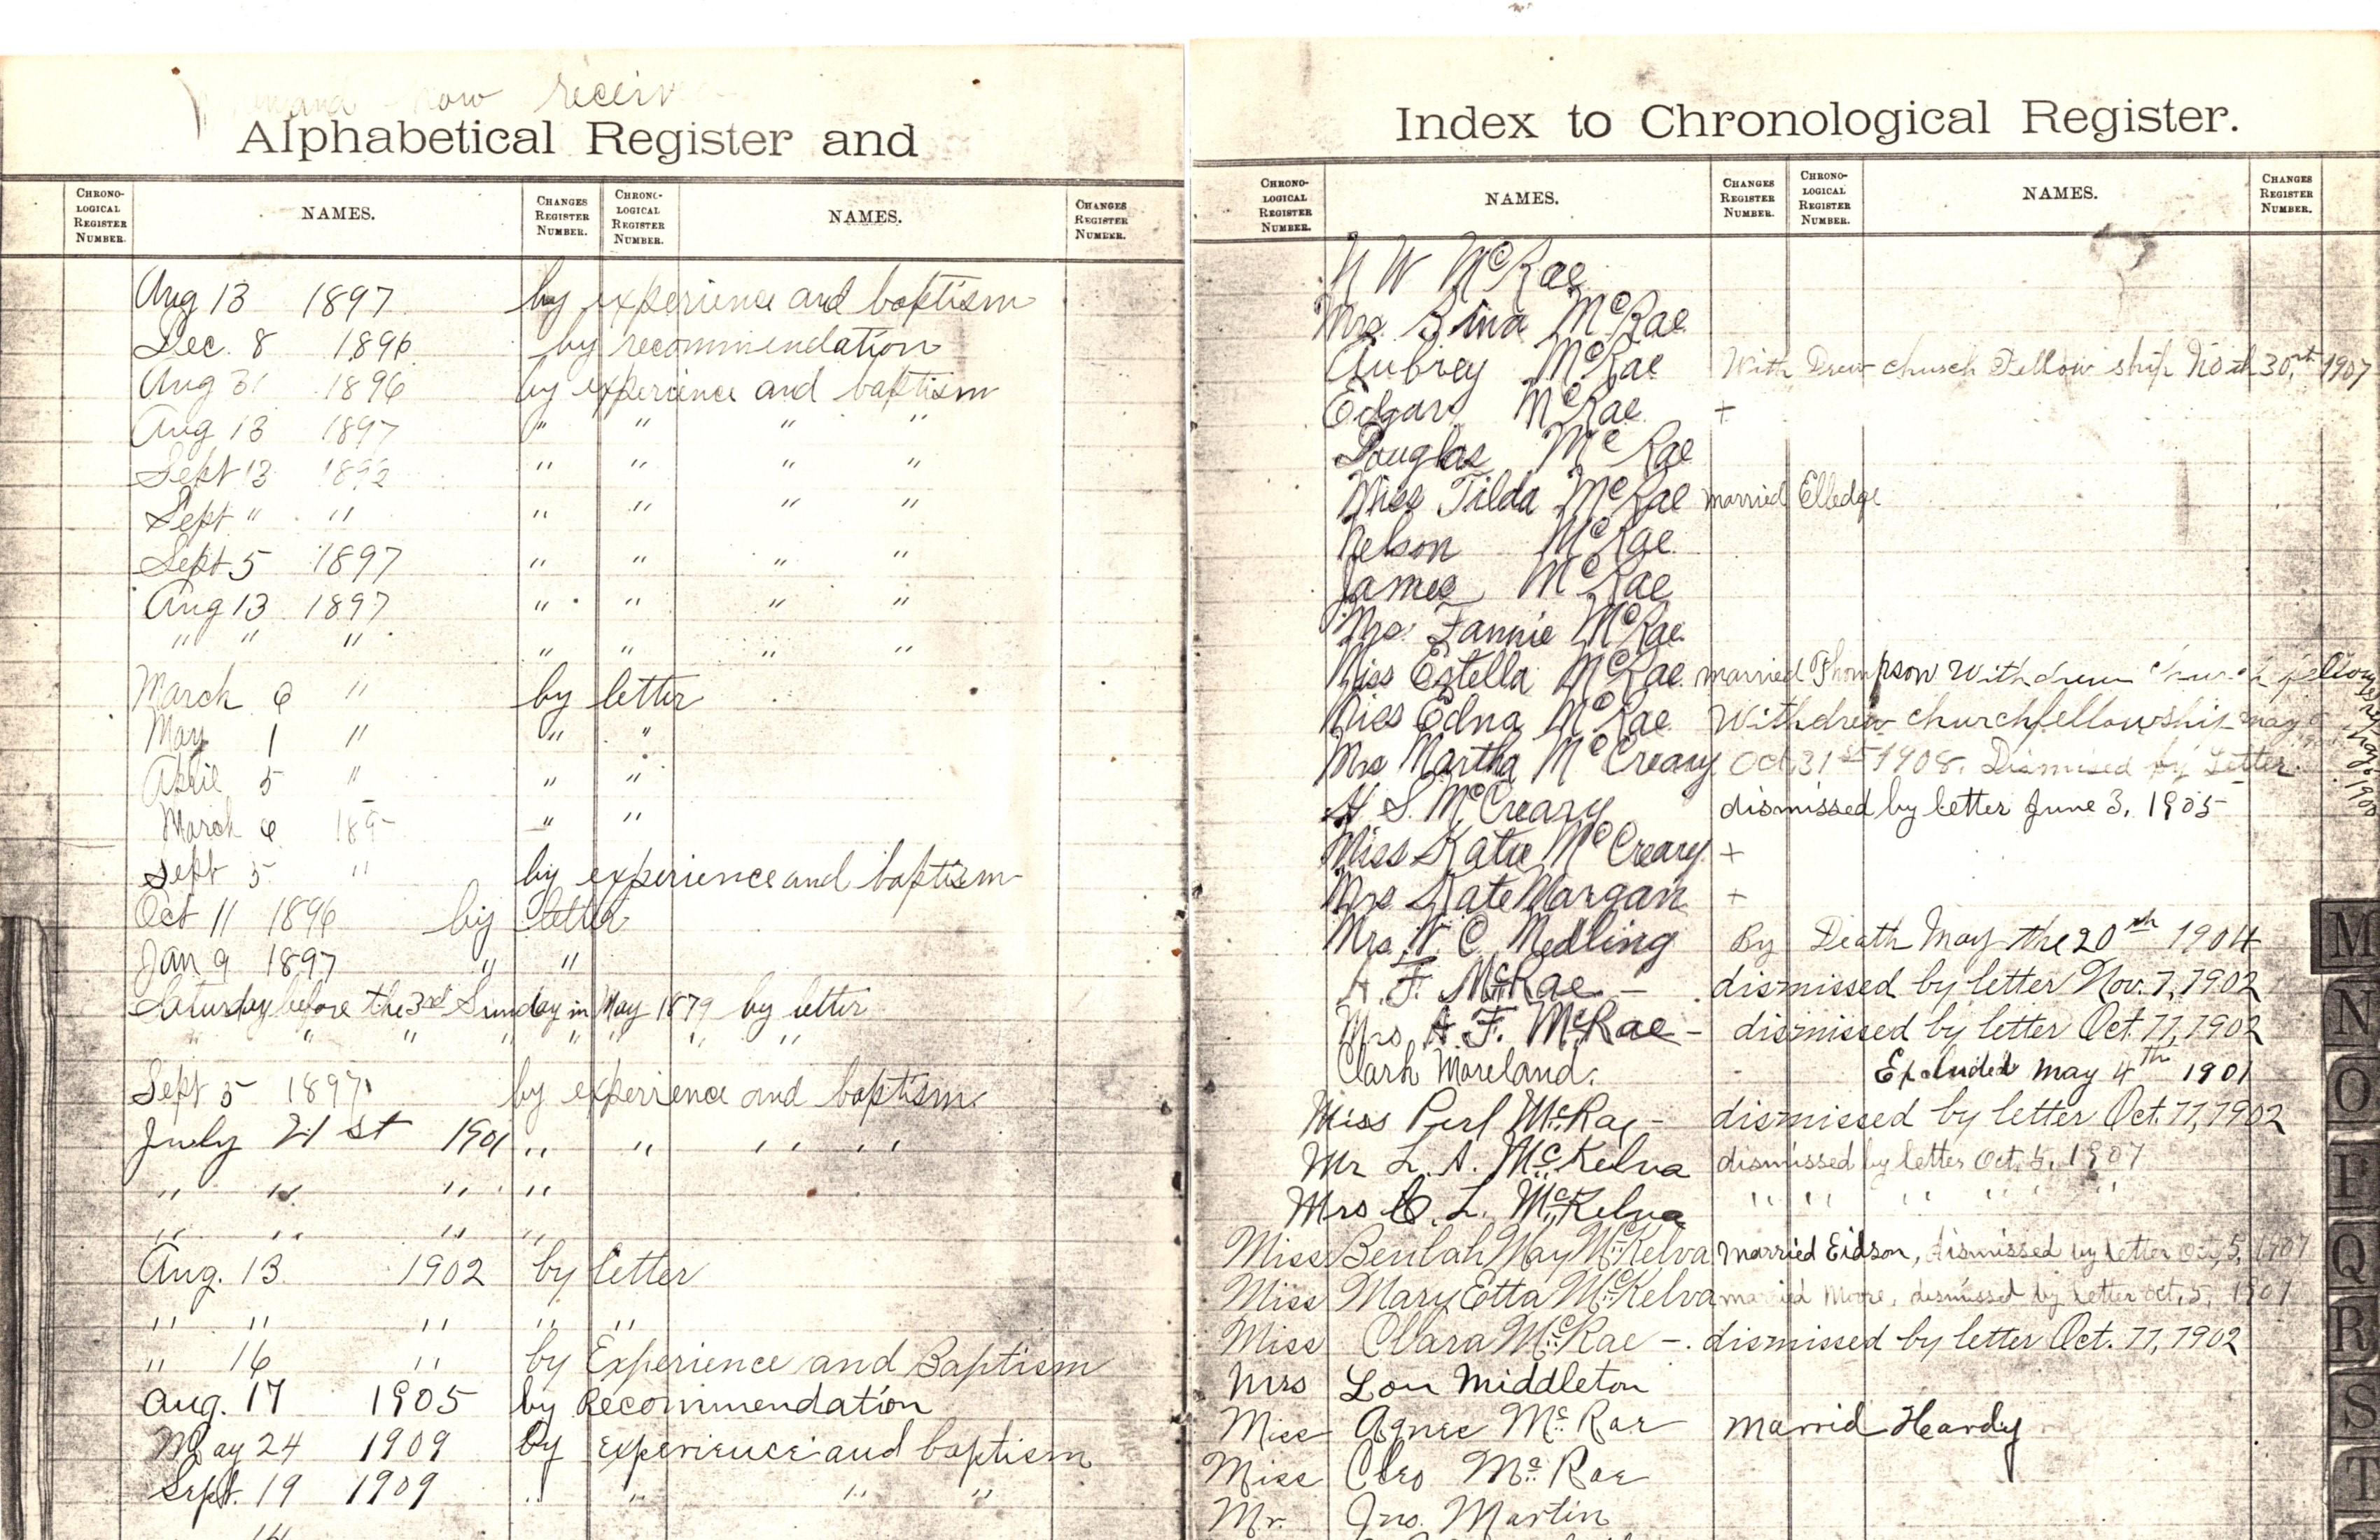 now receiv
Alphabetical Register and
CHRONO-LOGICAL REGISTER NUMBER. NAMES. CHANGES REGISTER NUMBER. CHRONO-LOGICAL REGISTER NUMBER. NAMES. CHANGES REGISTER NUMBER.
Aug 13 1897 by experience and baptism
Dec. 8 1896 by recommendation
Aug 31 1896 by experience and baptism
Aug 13 1897 " " " "
Sept 13 1892 " " " "
Sept " " " " " "
Sept 5 1897 " " " "
Aug 13 1897 " " " "
" " " " " " "
March 6 " by letter
May 1 " " "
April 5 " " "
March 6 189 " "
Sept 5 " by experience and baptism
Oct 11 1896 by letter
Jan 9 1897 " "
Saturday before the 3rd Sunday in May 1879 by letter
" " " " " " "
Sept 5 1897 by experience and baptism
July 21st 1901 " " " "
" " " "
" " " "
Aug. 13 1902 by letter
" " " " "
" 16 " by Experience and Baptism
Aug. 17 1905 by Recommendation
May 24 1909 By experience and baptism
Sept. 19 1909 " " " "
Index to Chronological Register.
CHRONO-LOGICAL REGISTER NUMBER. NAMES. CHANGES REGISTER NUMBER. CHRONO-LOGICAL REGISTER NUMBER. NAMES. CHANGES REGISTER NUMBER.
N W McRae
Mrs. McRae
Aubrey McRae With Drew church Fellow ship 30 1907
Edgar McRae +
Douglas McRae
Miss Tilda McRae married Elledge
Nelson McRae
James McRae
Mrs. Fannie McRae
Miss Estella McRae married Thompson Withdrew
Miss Edna McRae Withdrew church fellowship may
Mrs Martha McCreary Oct 31st 1908. Dismised by Letter
H S. McCreary dismissed by letter June 3, 1905
Miss Katie McCreary +
Mrs Kate Morgan +
Mrs N C Medling By Death May the 20th 1904
A. F. McRae - dismissed by letter Nov. 7, 1902
Mrs A. F. McRae - dismissed by letter Oct. 11, 1902
Clark Moreland. Excluded May 4th 1901
Miss Perl McRae - dismissed by letter Oct. 11, 1902
Mr L. A. McKelva dismissed by letter Oct. 5, 1907
Mrs C. L. McKelva " " " " "
Miss Beulah May McKelva married Eidson, dismissed by letter Oct, 5, 1907
Miss Mary Etta McKelva married Moore, dismissed by letter oct, 5, 1907
Miss Clara McRae - dismissed by letter Oct. 11, 1902
Mrs Lou Middleton
Miss Agnes McRae Marrid Hardy
Miss Cleo McRae
Mr. Jno. Martin
M
N
O
P
Q
R
S
T